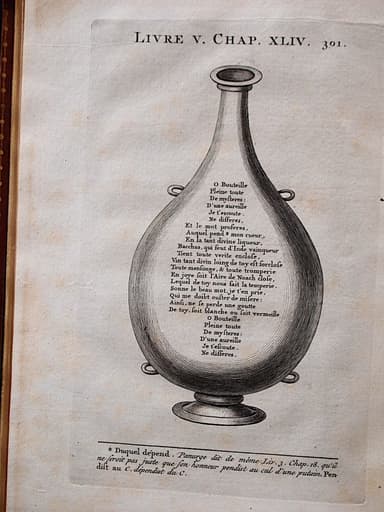 LIVRE V. CHAP. XLIV. 301.
O Bouteille
Pleine toute
De mysteres:
D'une aureille
Je t'escoute:
Ne differes,
Et le mot proferes,
Auquel pend * mon cueur,
En la tant divine liqueur,
Bacchus, qui feut d'Inde vainqueur
Tient toute verite enclose,
Vin tant divin loing de toy est forclose
Toute mensonge, & toute tromperie
En joye soit l'Aire de Noach close,
Lequel de toy nous fait la temperie.
Sonne le beau mot, je t'en prie,
Qui me doibt ouster de misere:
Ainsi, ne se perde une goutte
De toy, soit blanche ou soit vermeille
O Bouteille
Pleine toute
De mysteres:
D'une aureille
Je t'escoute:
Ne differes.
* Duquel dépend. Panurge dit de même Liv. 3. Chap. 18. qu'il
ne seroit pas juste que son honneur pendist au cul d'une putain. Pen
dist au C. dépendist du C.